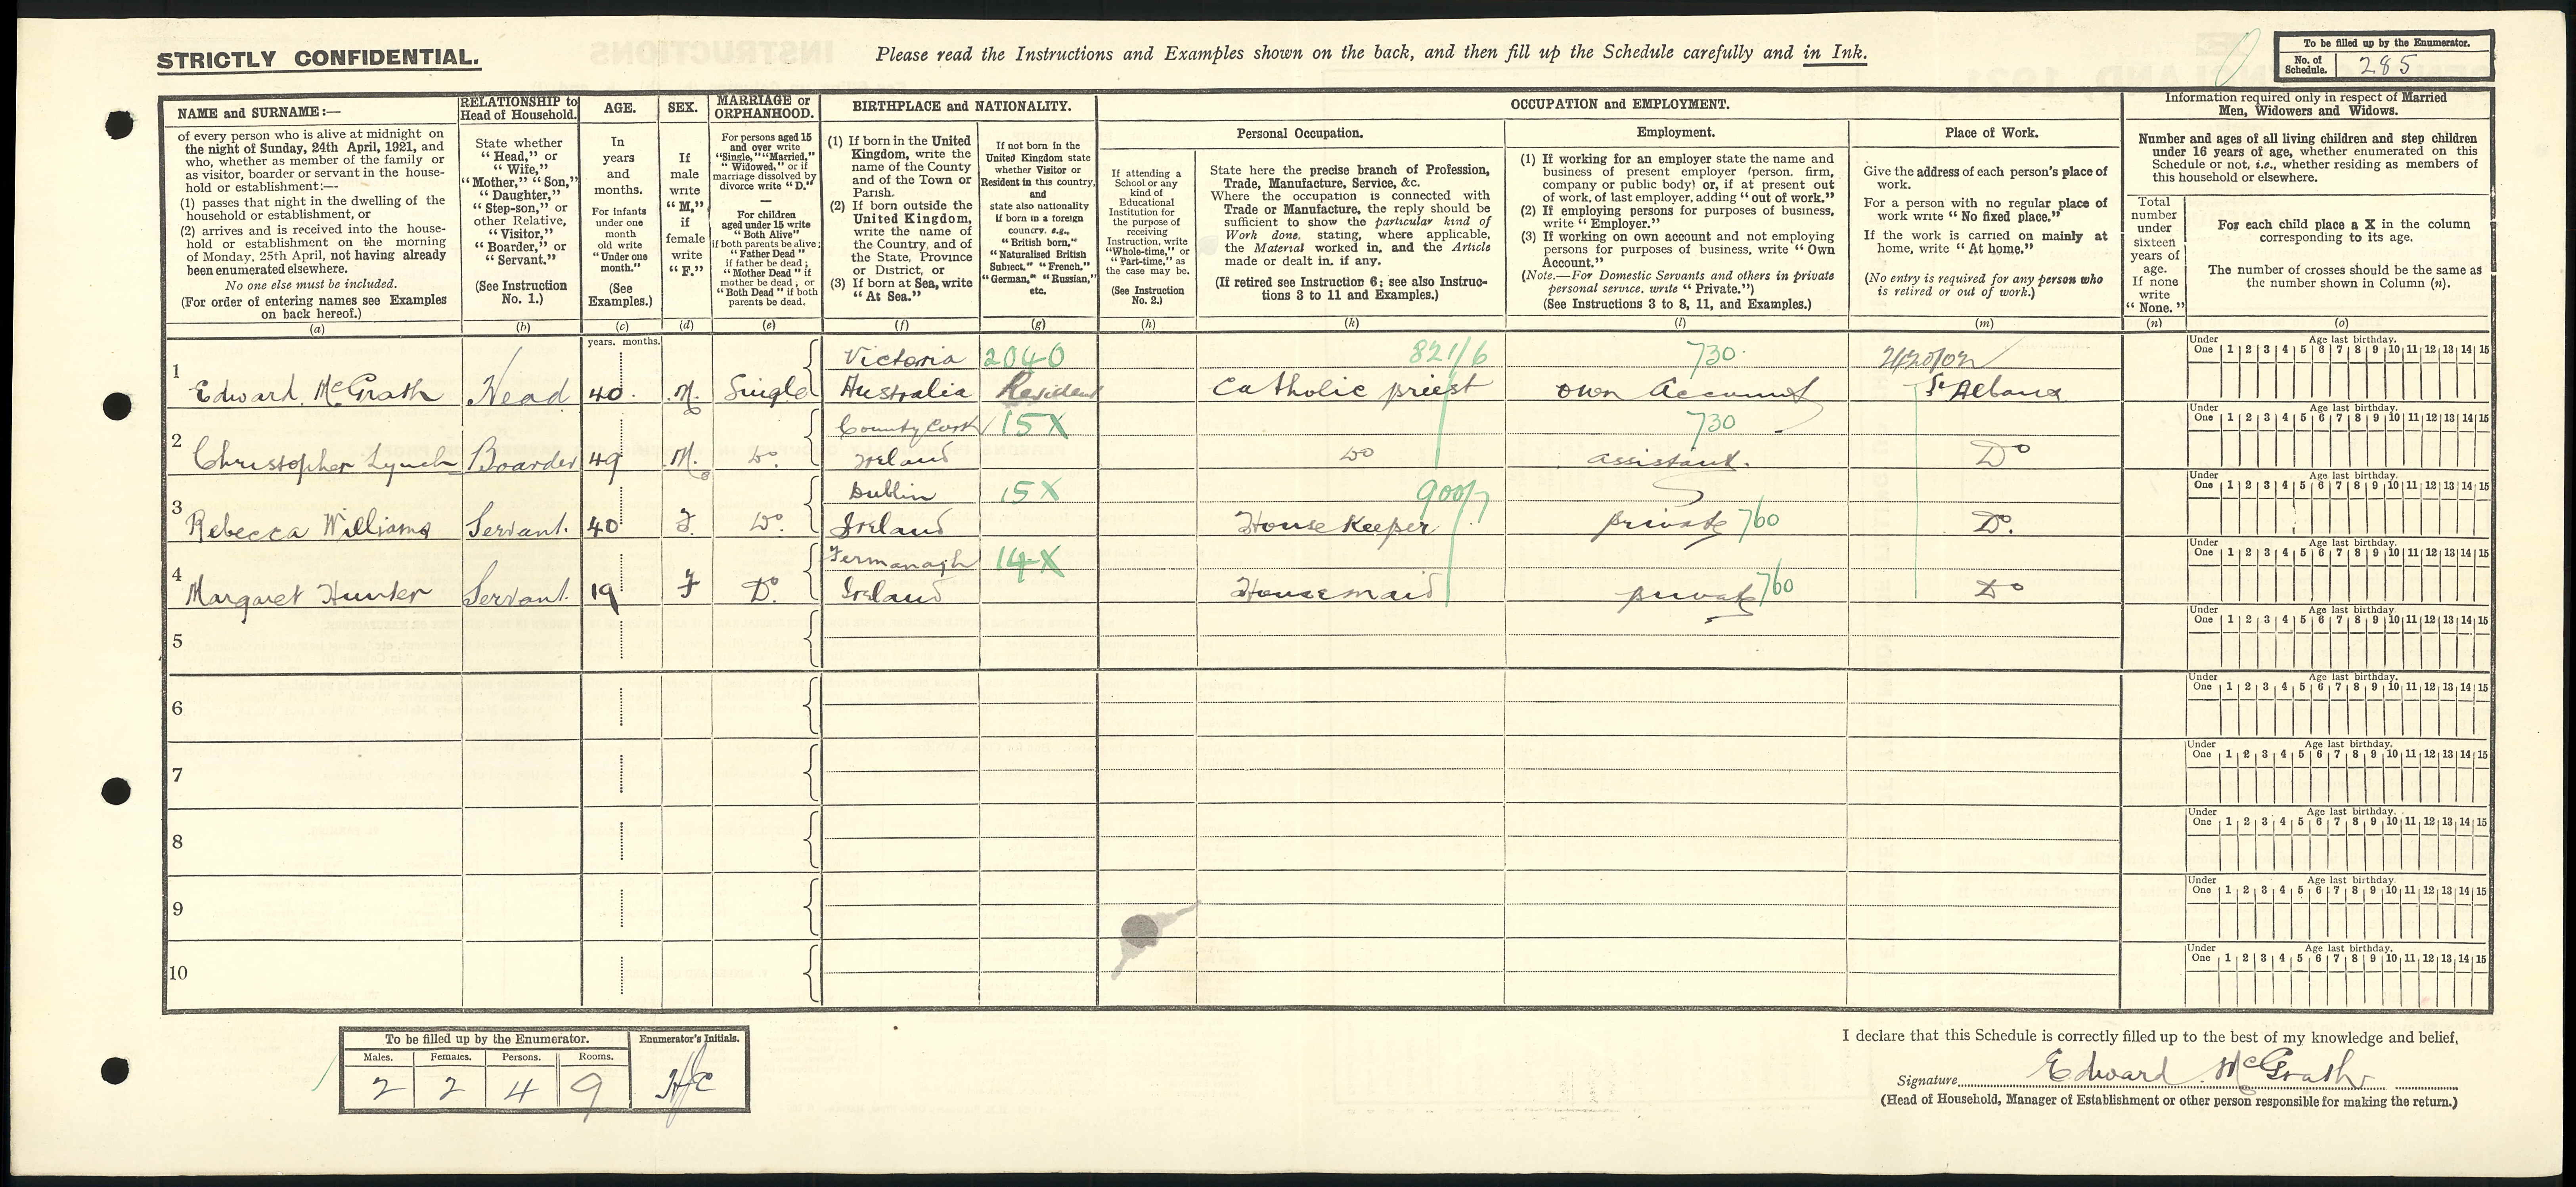 STRICTLY CONFIDENTIAL.
Please read the Instructions and Examples shown on the back, and then fill up the Schedule carefully and in Ink.
To be filled up by the Enumerator.
No. of Schedule. 285
NAME and SURNAME:—
of every person who is alive at midnight on
the night of Sunday, 24th April, 1921, and
who, whether as member of the family or
as visitor, boarder or servant in the house-
hold or establishment:—
(1) passes that night in the dwelling of the
household or establishment, or
(2) arrives and is received into the house-
hold or establishment on the morning
of Monday, 25th April, not having already
been enumerated elsewhere.
No one else must be included.
(For order of entering names see Examples
on back hereof.)
(a)
RELATIONSHIP to
Head of Household.
State whether
"Head," or
"Wife,"
"Mother," "Son,"
"Daughter,"
"Step-son," or
other Relative,
"Visitor,"
"Boarder," or
"Servant."
(See Instruction
No. 1.)
(b)
AGE.
In
years
and
months.
For infants
under one
month
old write
"Under one
month."
(See
Examples.)
(c)
SEX.
If
male
write
"M,"
if
female
write
"F."
(d)
MARRIAGE or
ORPHANHOOD.
For persons aged 15
and over write
"Single," "Married,"
"Widowed," or if
marriage dissolved by
divorce write "D."
For children
aged under 15 write
"Both Alive"
if both parents be alive;
"Father Dead"
if father be dead;
"Mother Dead" if
mother be dead; or
"Both Dead" if both
parents be dead.
(e)
BIRTHPLACE and NATIONALITY.
(1) If born in the United
Kingdom, write the
name of the County
and of the Town or
Parish.
(2) If born outside the
United Kingdom,
write the name of
the Country, and of
the State, Province
or District, or
(3) If born at Sea, write
"At Sea."
(f)
If not born in the
United Kingdom state
whether Visitor or
Resident in this country,
and
state also nationality
if born in a foreign
country. e.g.,
"British born,"
"Naturalised British
Subject," "French,"
"German," "Russian,"
etc.
(g)
OCCUPATION and EMPLOYMENT.
If attending a
School or any
kind of
Educational
Institution for
the purpose of
receiving
Instruction, write
"Whole-time," or
"Part-time," as
the case may be.
(See Instruction
No. 2.)
(h)
Personal Occupation.
State here the precise branch of Profession,
Trade, Manufacture, Service, &c.
Where the occupation is connected with
Trade or Manufacture, the reply should be
sufficient to show the particular kind of
Work done, stating, where applicable,
the Material worked in, and the Article
made or dealt in, if any.
(If retired see Instruction 6; see also Instruc-
tions 3 to 11 and Examples.)
(k)
Employment.
(1) If working for an employer state the name and
business of present employer (person, firm,
company or public body) or, if at present out
of work, of last employer, adding "out of work."
(2) If employing persons for purposes of business,
write "Employer."
(3) If working on own account and not employing
persons for purposes of business, write "Own
Account."
(Note.—For Domestic Servants and others in private
personal service, write "Private.")
(See Instructions 3 to 8, 11, and Examples.)
(l)
Place of Work.
Give the address of each person's place of
work.
For a person with no regular place of
work write "No fixed place."
If the work is carried on mainly at
home, write "At home."
(No entry is required for any person who
is retired or out of work.)
(m)
Information required only in respect of Married
Men, Widowers and Widows.
Number and ages of all living children and step children
under 16 years of age, whether enumerated on this
Schedule or not, i.e., whether residing as members of
this household or elsewhere.
Total
number
under
sixteen
years of
age.
If none
write
"None."
(n)
For each child place a X in the column
corresponding to its age.
The number of crosses should be the same as
the number shown in Column (n).
(o)
years. months.
1 Edward McGrath Head 40 M. Single Victoria Australia 2040 Resident Catholic priest 821/6 own Account 730 St Albans
Under One Age last birthday. 1 2 3 4 5 6 7 8 9 10 11 12 13 14 15
2 Christopher Lynch Boarder 49 M. Do. County Cork Ireland 15X Do assistant. 730 Do
Under One Age last birthday. 1 2 3 4 5 6 7 8 9 10 11 12 13 14 15
3 Rebecca Williams Servant. 40 F. Do. Dublin Ireland 15X House Keeper 900/7 private 760 Do.
Under One Age last birthday. 1 2 3 4 5 6 7 8 9 10 11 12 13 14 15
4 Margaret Hunter Servant. 19 F Do. Fermanagh Ireland 14X Housemaid private 760 Do
Under One Age last birthday. 1 2 3 4 5 6 7 8 9 10 11 12 13 14 15
5
Under One Age last birthday. 1 2 3 4 5 6 7 8 9 10 11 12 13 14 15
6
Under One Age last birthday. 1 2 3 4 5 6 7 8 9 10 11 12 13 14 15
7
Under One Age last birthday. 1 2 3 4 5 6 7 8 9 10 11 12 13 14 15
8
Under One Age last birthday. 1 2 3 4 5 6 7 8 9 10 11 12 13 14 15
9
Under One Age last birthday. 1 2 3 4 5 6 7 8 9 10 11 12 13 14 15
10
Under One Age last birthday. 1 2 3 4 5 6 7 8 9 10 11 12 13 14 15
To be filled up by the Enumerator.
Males. Females. Persons. Rooms.
2 2 4 9
Enumerator's Initials.
I declare that this Schedule is correctly filled up to the best of my knowledge and belief,
Signature Edward McGrath
(Head of Household, Manager of Establishment or other person responsible for making the return.)